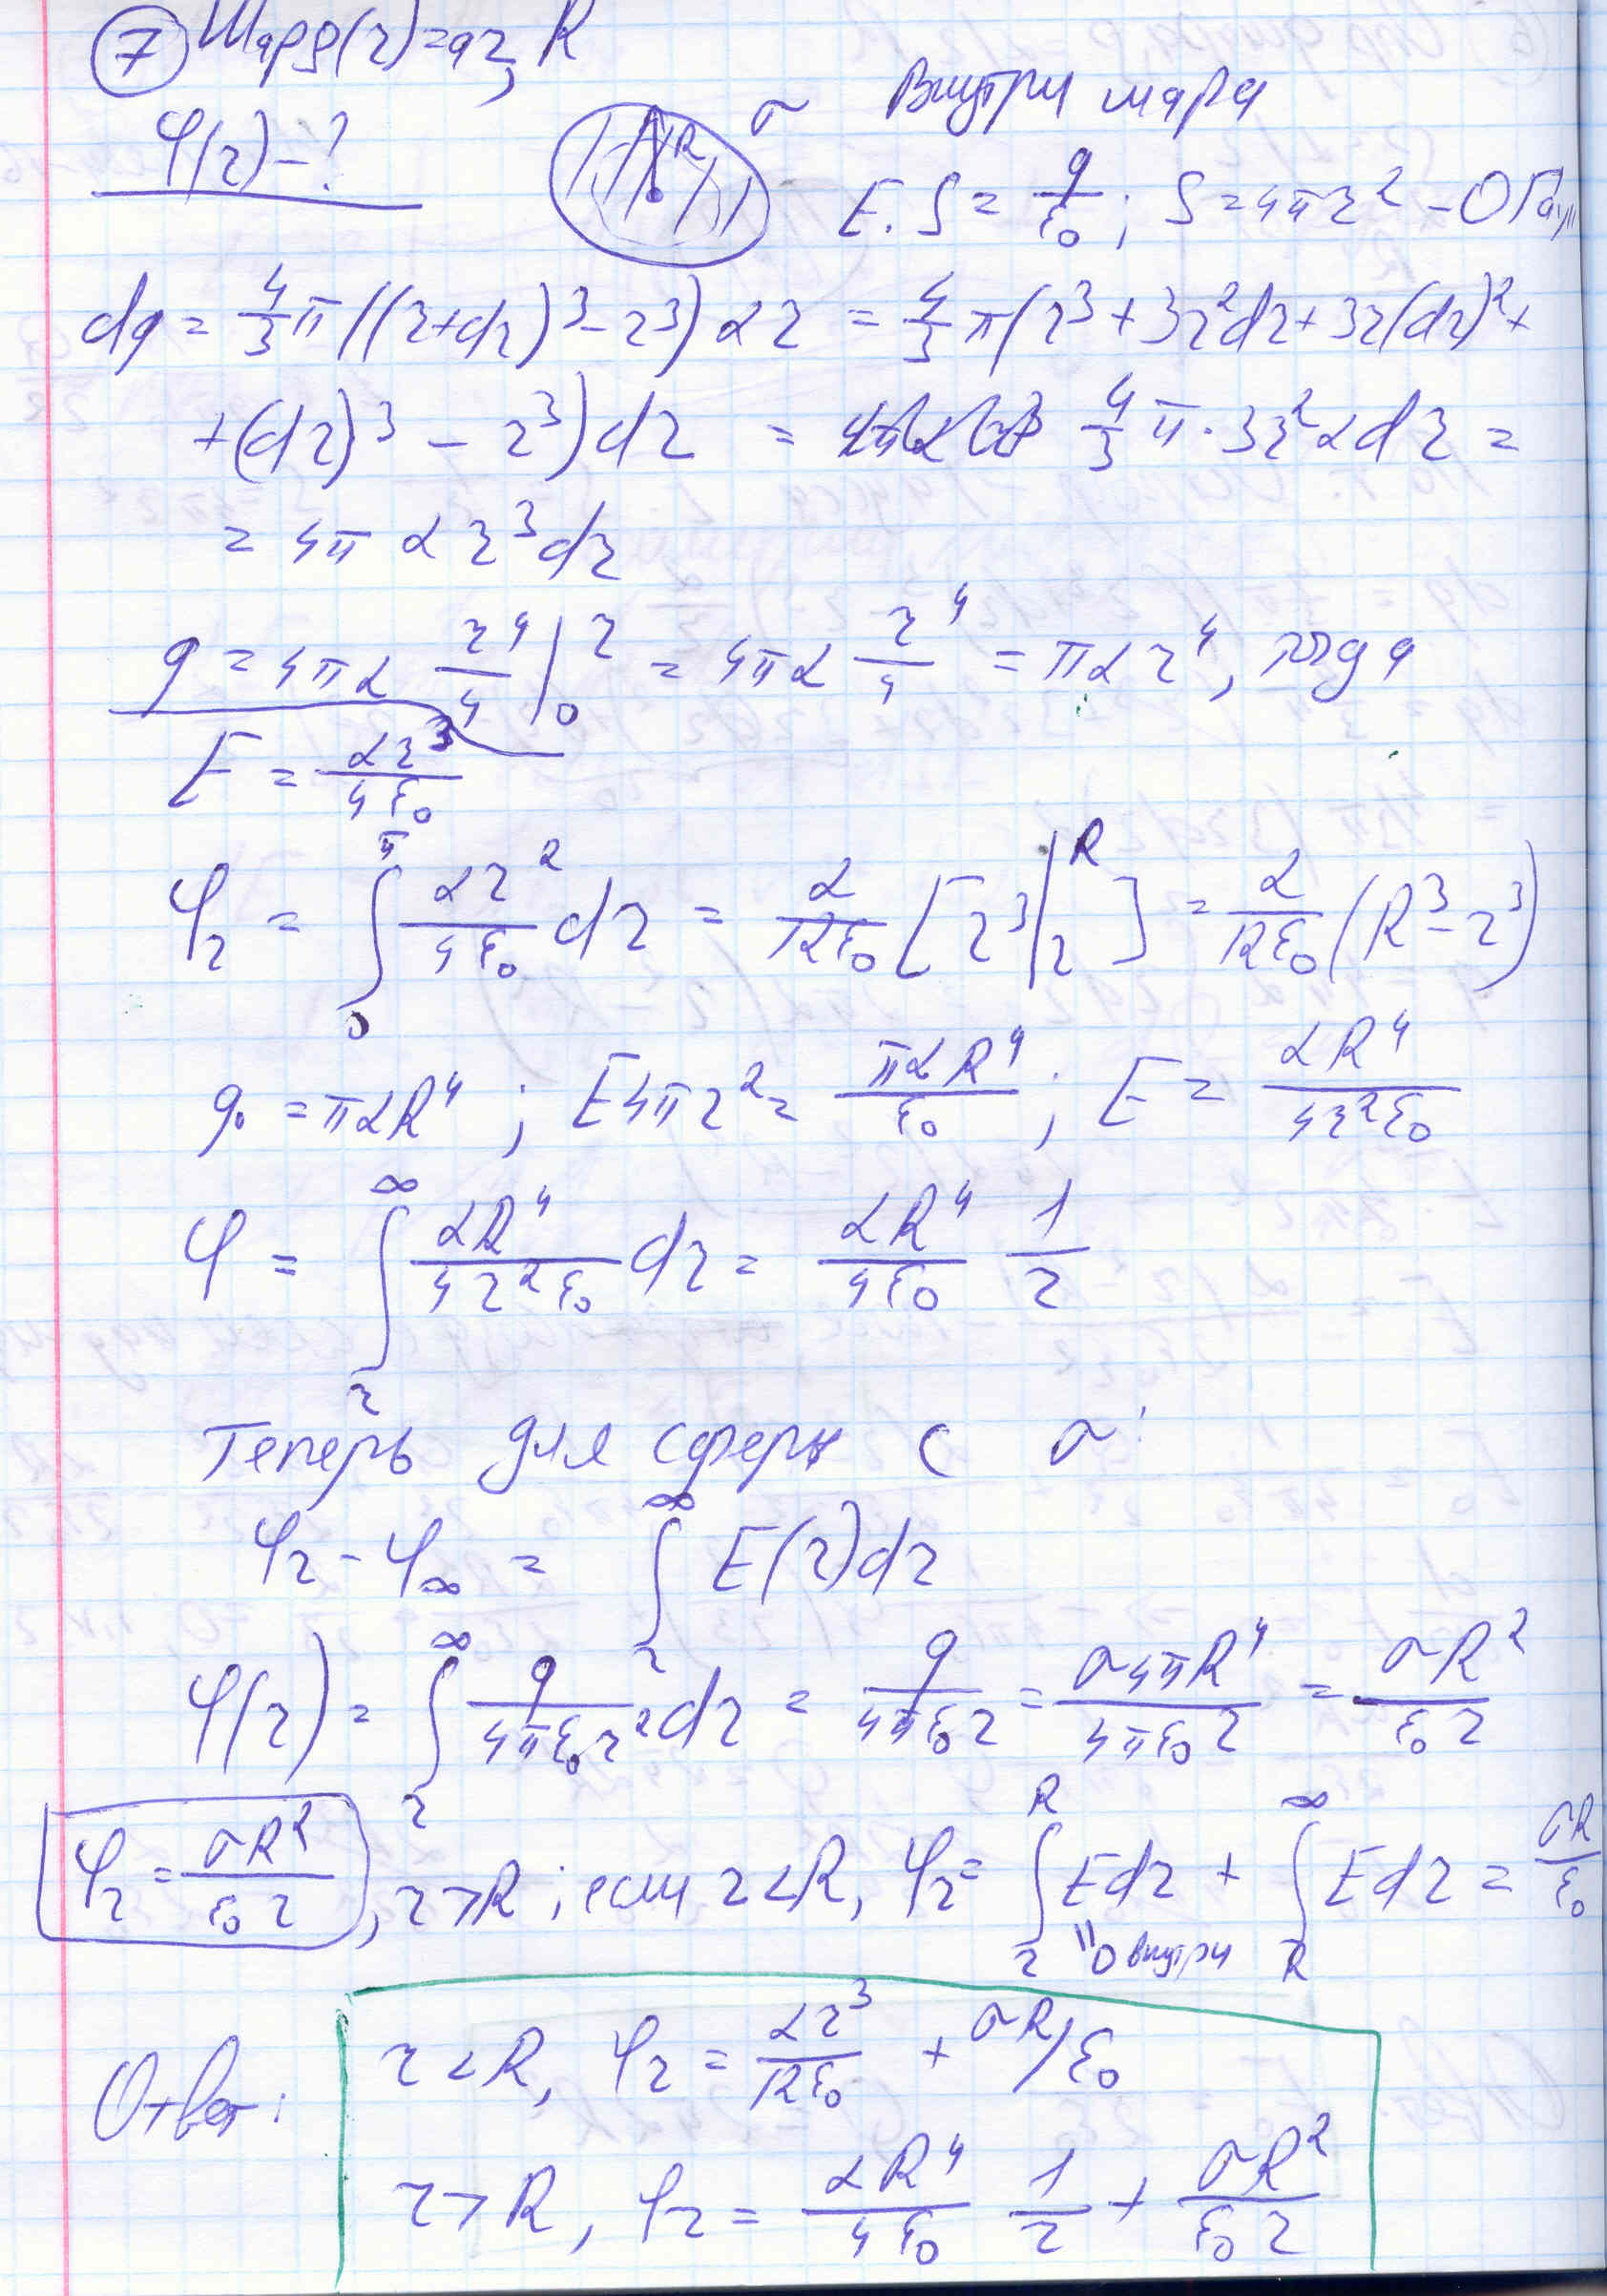 7 Шар ρ(r)=αr, R
φ(r) - ?
R σ Внутри шара
E·S = q/ε₀ ; S = 4πr² - ОГаусс
dq = 4/3 π((r+dr)³ - r³) αr = 4/3 π(r³ + 3r²dr + 3r(dr)² +
+ (dr)³ - r³)dr = 4/3 π·3r²αdr =
= 4π α r³dr
q = 4πα r⁴/4 |₀^r = 4πα r⁴/4 = παr⁴, тогда
E = αr³/4ε₀
φr = ∫ αr²/4ε₀ dr = α/12ε₀ [r³|r^R] = α/12ε₀ (R³ - r³)
q₀ = παR⁴ ; E4πr² = παR⁴/ε₀ ; E = αR⁴/4r²ε₀
φ = ∫r^∞ αR⁴/4r²ε₀ dr = αR⁴/4ε₀ 1/r
Теперь для сферы с σ:
φr - φ∞ = ∫r^∞ E(r)dr
φ(r) = ∫r^∞ q/4πε₀r² dr = q/4πε₀r = σ4πR⁴/4πε₀r = σR²/ε₀r
φr = σR²/ε₀r, r>R ; если r<R, φr = ∫r^R Edr + ∫R^∞ Edr = σR/ε₀
"0 внутри
Ответ: r<R, φr = αr³/12ε₀ + σR/ε₀
r>R, φr = αR⁴/4ε₀ 1/r + σR²/ε₀r